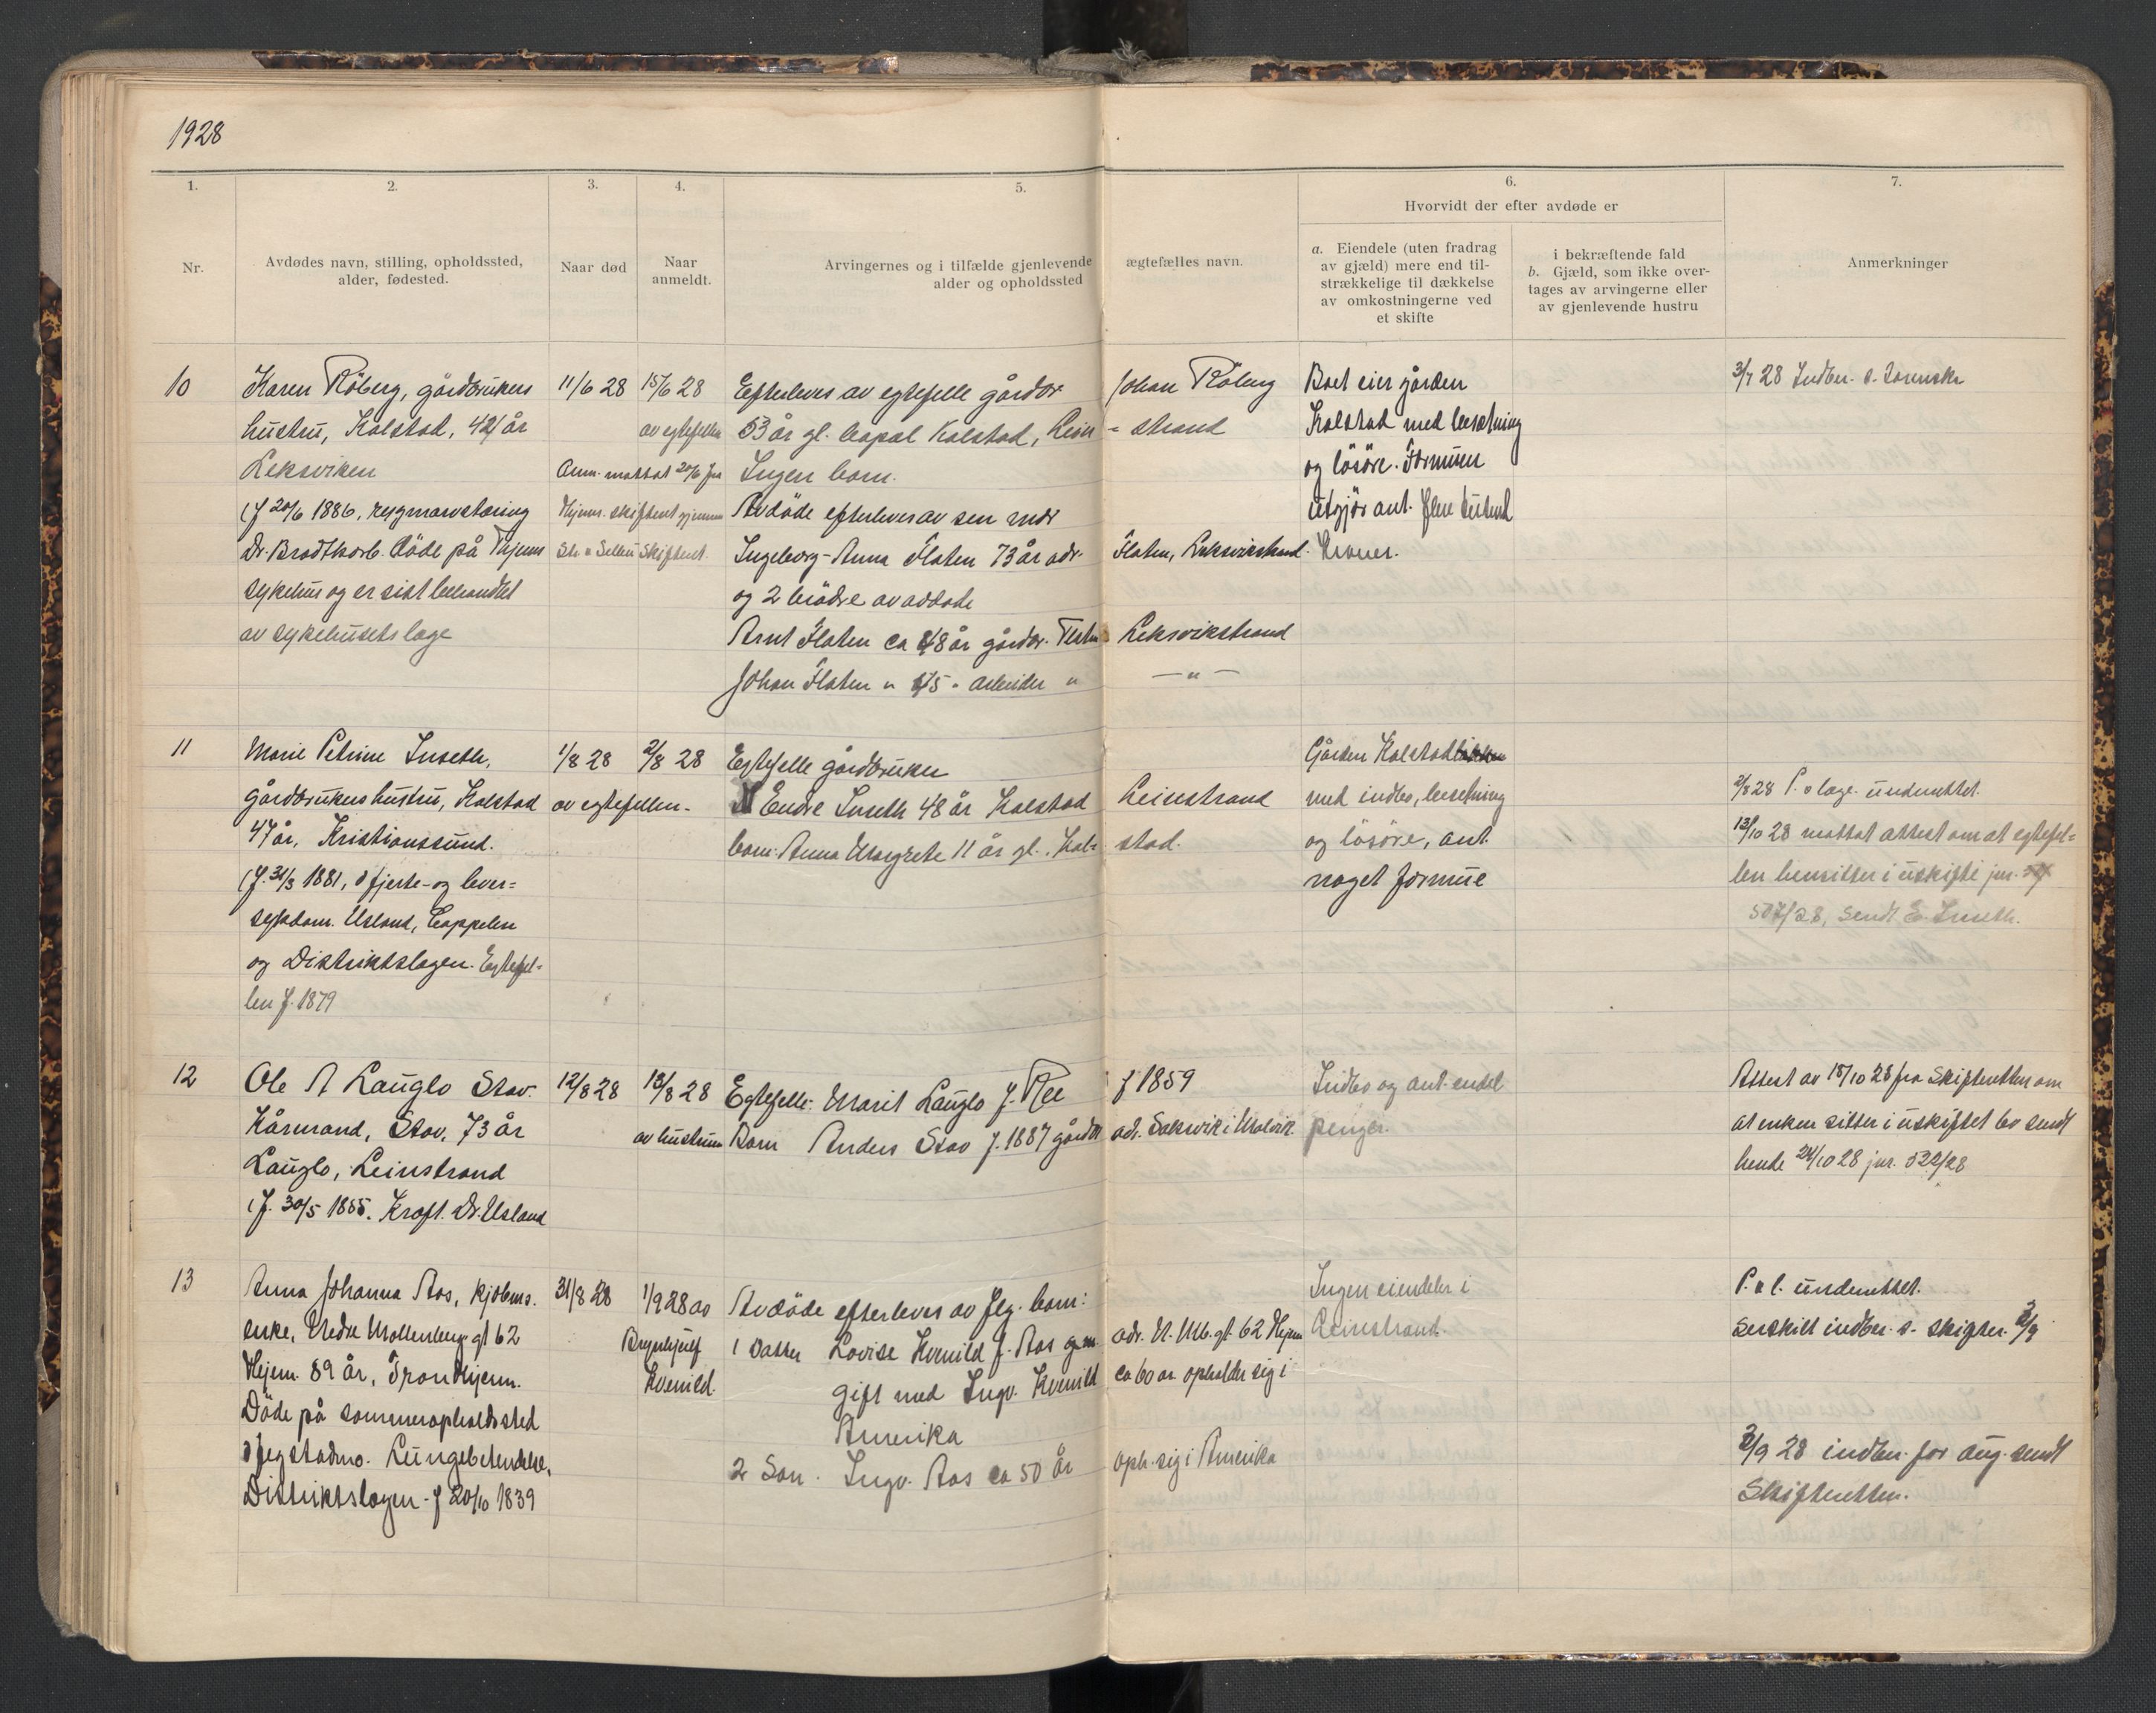 1928
1.
2.
3.
4.
5.
6.
7.
Nr.
Avdødes navn, stilling, opholdssted,
alder, fødested.
Naar død
Naar
anmeldt.
Arvingernes og i tilfælde gjenlevende ægtefælles navn.
alder og opholdssted
Hvorvidt der efter avdøde er
a. Eiendele (uten fradrag
av gjæld) mere end til-
strækkelige til dækkelse
av omkostningerne ved
et skifte
i bekræftende fald
b. Gjæld, som ikke over-
tages av arvingerne eller
av gjenlevende hustru
Anmerkninger
10
Karen Röberg, gårdbrukers
hustru, Kolstad, 42 år
Leksviken
(f 20/6 1886, rygmarvstæring
Dr. Brodtkorb. Döde på Thjems
sykehus og er sist behandlet
av sykehusets læge
11/6 28
15/6 28
av egtefellen
Anm. mottat 20/6 fra
Thjems. skifteret gjennem
Str. & Selbu Skifteret.
Efterleves av egtefelle gårdbr Johan Röberg
53 år gl. bopæl Kolstad, Lein-strand
Ingen barn.
Avdöde efterleves av sen mor
Ingeborg-Anna Flaten 73 år adr. Flaten, Leksvikstrand.
og 2 brödre av avdöde
Arnt Flaten ca 48 år gårdbr. Leksvikstrand
Johan Flaten " 45 " arbeider " —"—
Boet eier gården
Kolstad med besetning
og lösöre. Formuen
utgjör ant. flere tusend
Kroner.
3/7 28 Indber. s. Sorenskr
11
Marie Petrine Inseth,
gårdbrukers hustru, Kolstad
47 år, Kristianssund.
(f. 31/3 1881, Hjerte- og lever-
sykdom. Usland, Cappelen
og Distriktslægen. Egtefel-
len f. 1879
1/8 28
2/8 28
av egtefellen.
Egtefelle gårdbruker
Endre Inseth 48 år Kolstad Leinstrand
barn: Anna Margrete 11 år gl. Kol-stad.
Gården Kolstad
med indbo, besetning
og lösöre, ant.
noget formue
2/8 28 P. & læge. underrettet.
13/10 28 mottat attest om at egtefel-
len hensitter i uskifte jnr.
507/28, sendt E. Inseth.
12
Ole A Lauglo Stav.
Kårmand, Stav, 73 år
Lauglo, Leinstrand
(f. 30/5 1855. Kræft. Dr. Usland
12/8 28
13/8 28
av hustruen
Egtefelle: Marit Lauglo f. Ree f 1859
Barn Anders Stav f. 1887 gårdbr adr. Saksvik i Malvik.
Indbo og ant. endel
penger.
Attest av 18/10 28 fra Skifteretten om
at enken sitter i uskiftet bo sendt
hende 24/10 28 jnr. 522/28
13
Anna Johanna Aas, kjöbms.
enke, Nedre Mollenberg gt 62
Thjem. 89 år, Trondhjem.
Döde på sommeropholdssted
Lungebetendelse,
Distriktslægen - f 20/10 1839
31/8 28
1/9 28 av
Brynhjulf
Kvenild.
Avdöde efterleves av flg. barn:
1 Datter Lovise Kvenild f. Aas adr. N. Mb. gt. 62 Thjem
gift med Ingv. Kvenild ca 60 år opholder sig i
Amerika
2 Søn. Ingv. Aas ca 50 år oph. sig i Amerika
Ingen eiendeler i
Leinstrand.
P. & l. underrettet.
Serskilt indber. s. skifter. 3/9
3/9 28 indber. for aug. sendt
Skifteretten.